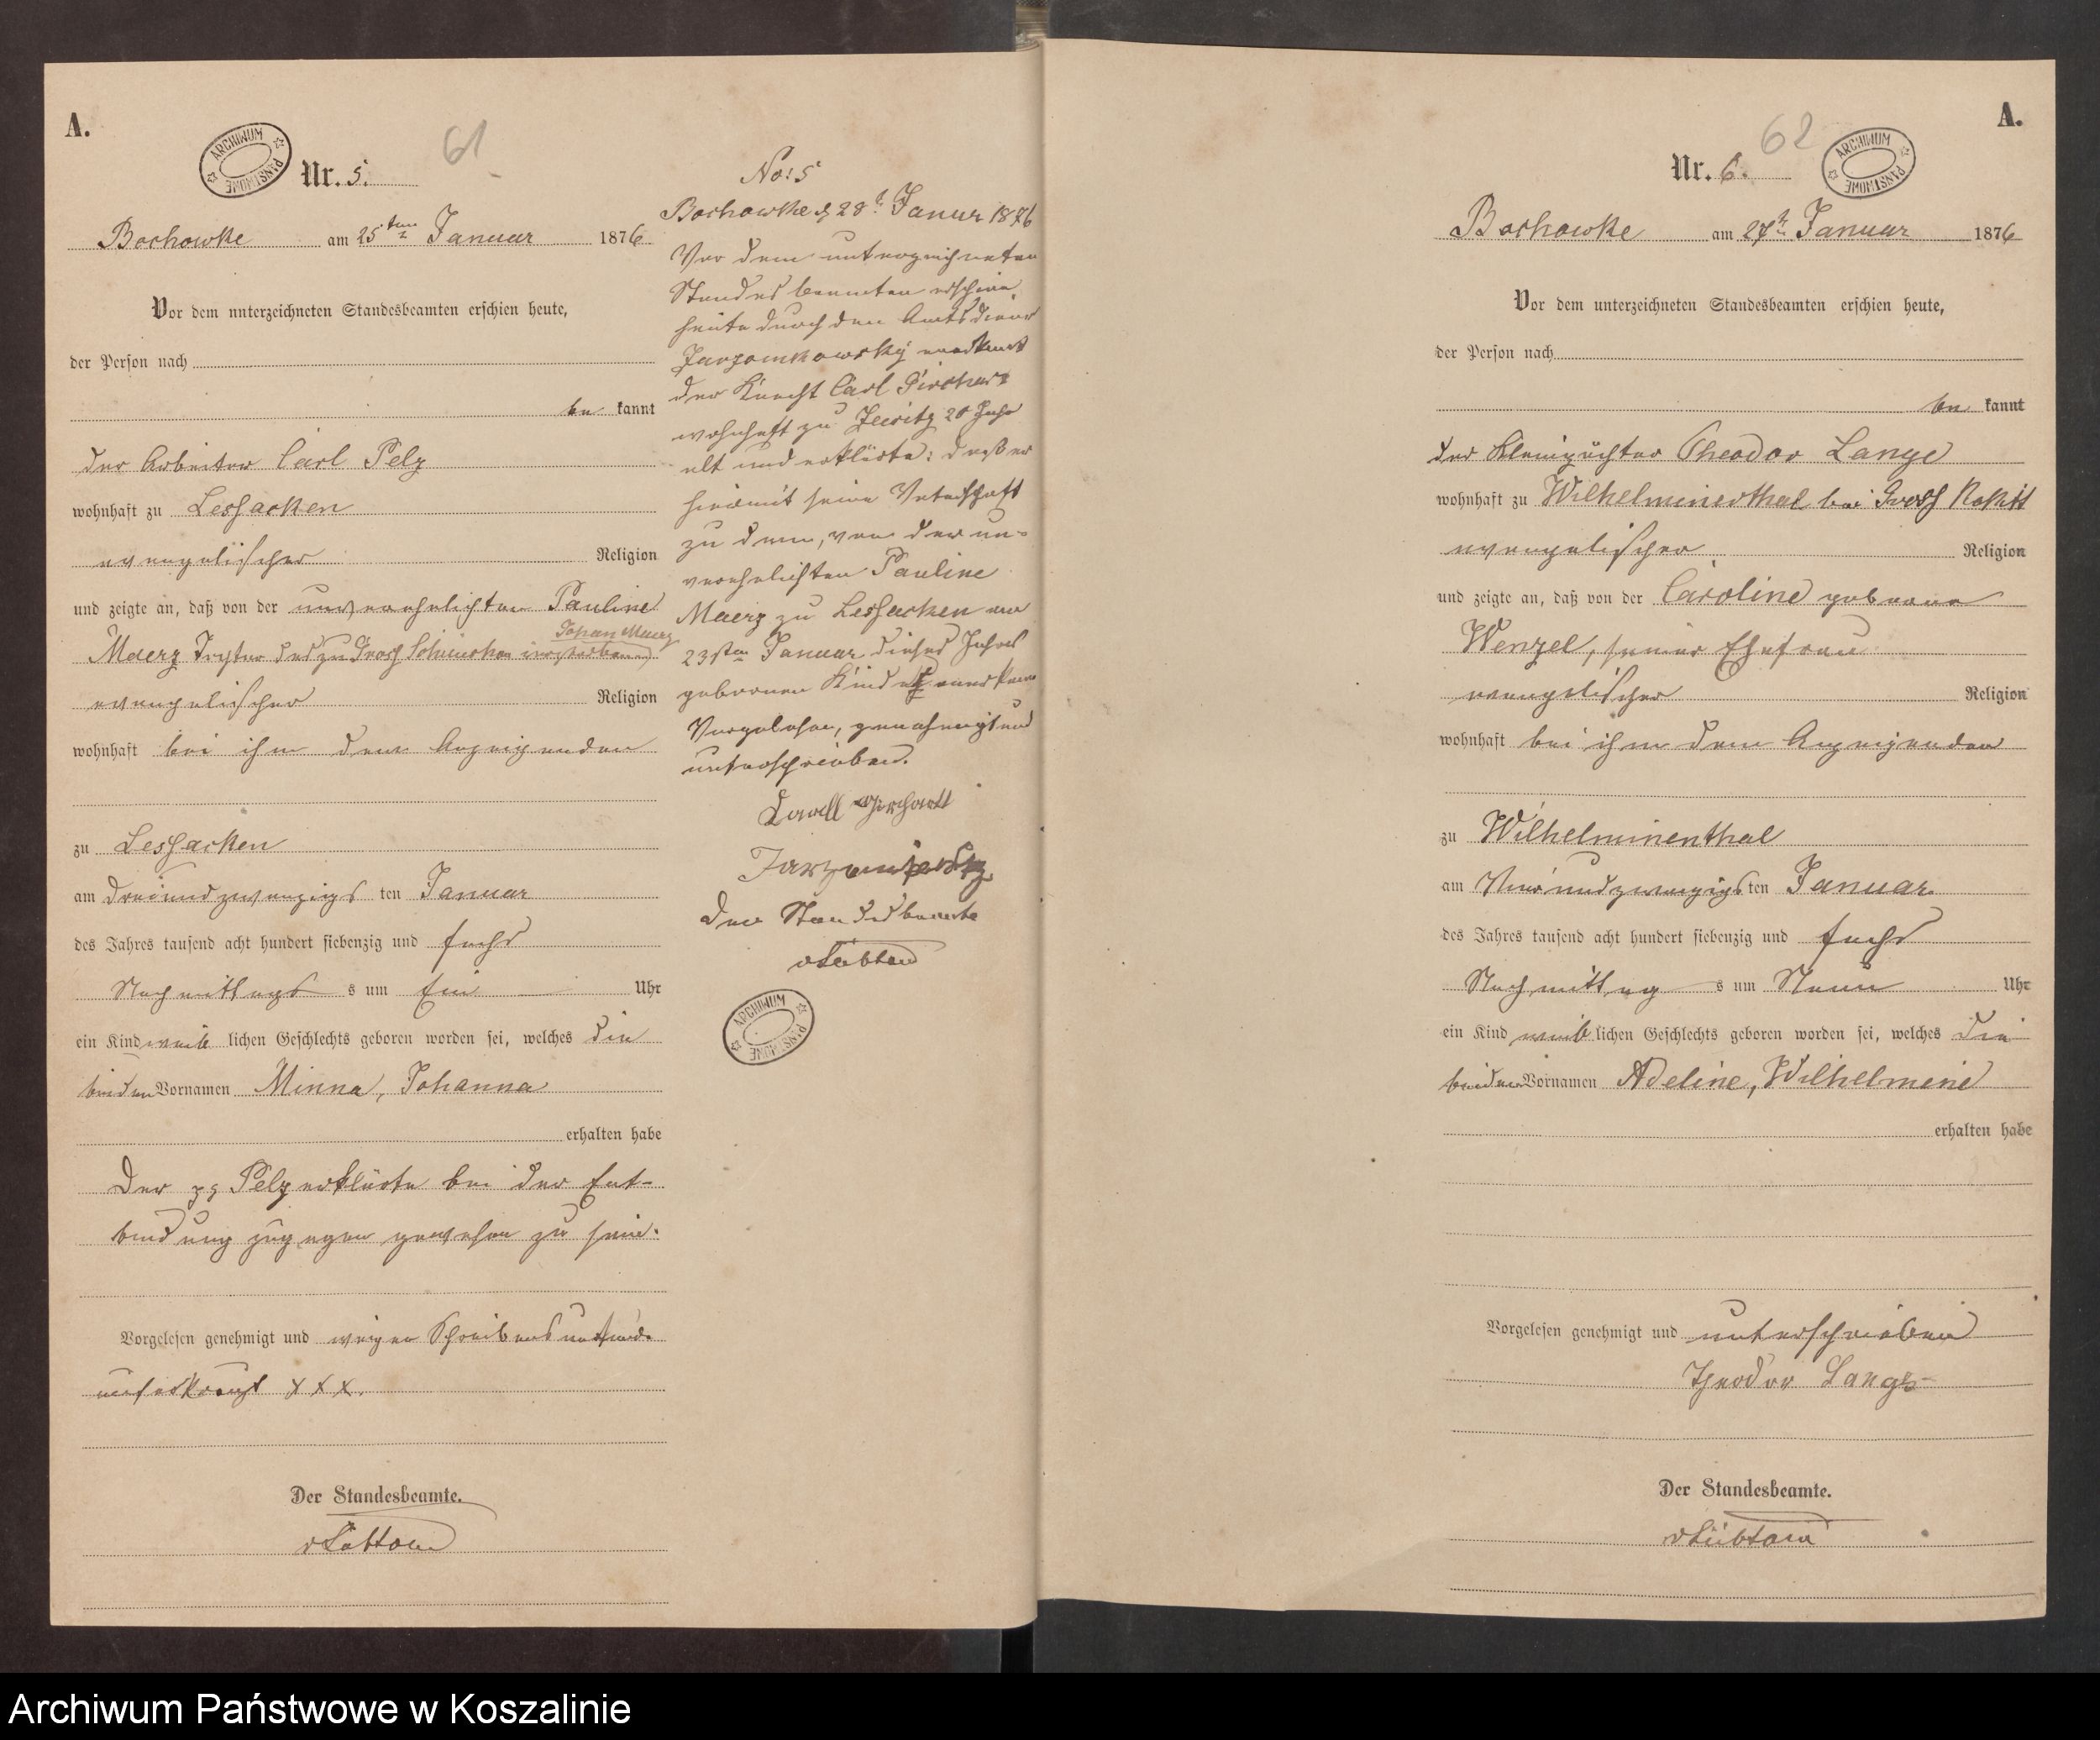 A.
ARCHIWUM PAŃSTWOWE
61
Nr. 5.
Bochowke am 25ten Januar 1876
Vor dem unterzeichneten Standesbeamten erschien heute,
der Person nach
be kannt
der Arbeiter Carl Pelz
wohnhaft zu Lessacken
evangelischer Religion
und zeigte an, daß von der unverehelichten Pauline
Johan Maerz
Maerz Tochter des zu Gross verstorbenen
evangelischer Religion
wohnhaft bei ihm dem Anzeigenden
zu Lessacken
am dreiundzwanzigs ten Januar
des Jahres tausend acht hundert siebenzig und sechs
Nachmittags s um Ein Uhr
ein Kind weib lichen Geschlechts geboren worden sei, welches die
beiden Vornamen Minna, Johanna
erhalten habe
Der pp Pelz erklärte bei der Ent-
bindung zugegen gewesen zu sein.
Vorgelesen genehmigt und wegen Schreibensunkunde
unterkreuzt XXX.
Der Standesbeamte.
vLübtow
No: 5
Bochowke d 28t Januar 1876
Vor dem unterzeichneten
Standesbeamten erschien
heute durch den Amtsdiener
Jarzomkowsky anerkannt
der Knecht Carl Girchart
wohnhaft zu 28 Jahr
alt und erklärte: daß er
hiermit seine Vaterschaft
zu dem, von der un-
verehelichten Pauline
Maerz zu Lessacken am
23sten Januar dieses Jahres
geborenen Kinde anerkenne
Vorgelesen, genehmigt und
unterschrieben.
Caroll Girchartt
Der Standesbeamte
vLübtow
ARCHIWUM PAŃSTWOWE
A.
62
ARCHIWUM PAŃSTWOWE
Nr. 6.
Bochowke am 27t Januar 1876
Vor dem unterzeichneten Standesbeamten erschien heute,
der Person nach
be kannt
der Kleinpächter Theodor Lange
wohnhaft zu Wilhelminenthal bei Gross Rakitt
evangelischer Religion
und zeigte an, daß von der Caroline geborene
Wenzel, seiner Ehefrau
evangelischer Religion
wohnhaft bei ihm dem Anzeigenden
zu Wilhelminenthal
am Vierundzwanzigs ten Januar
des Jahres tausend acht hundert siebenzig und sechs
Nachmittag s um Neun Uhr
ein Kind weib lichen Geschlechts geboren worden sei, welches die
beiden Vornamen Adeline, Wilhelmine
erhalten habe
Vorgelesen genehmigt und unterschrieben
Theodor Lange
Der Standesbeamte.
vLübtow
Archiwum Państwowe w Koszalinie